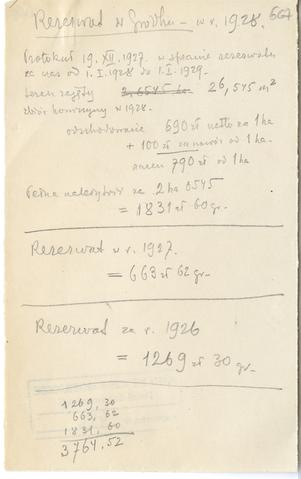 Rezerwat w Gródku – w r. 1928. 667
Protokuł 19. XII. 1927. w sprawie rezerwatu
za czas od 1. I. 1928 do 1. I. 1929.
teren zajęty 2,6545 ha 26,545 m²
zbiór komisyjny w 1928.
odszkodowanie 690 zł netto za 1 ha
+ 100 zł za nawóz od 1 ha.
razem 790 zł od 1 ha
Pełna należytość za 2 ha 6545
= 1831 zł 60 gr.
Rezerwat w r. 1927.
= 663 zł 62 gr.
Rezerwat za r. 1926
= 1269 zł 30 gr.
1269,30
663,62
1831,60
3764,52